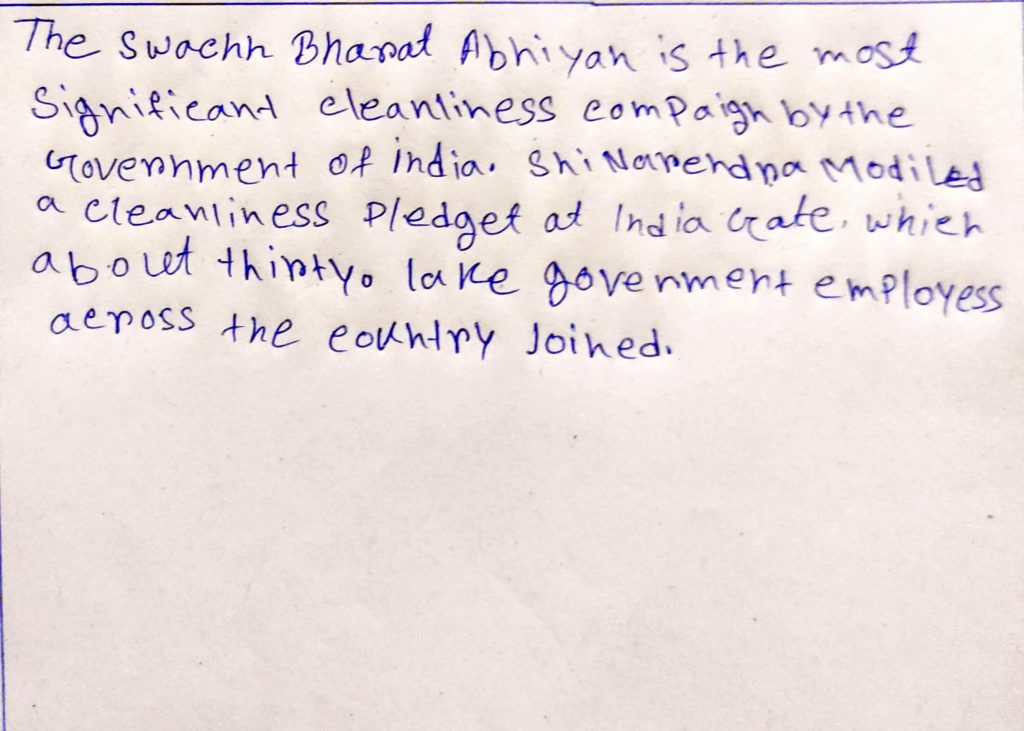 The Swachh Bharat Abhiyan is the most
Significant cleanliness compaign by the
Government of india. Shi Narendra Modi led
a cleanliness Pledget at India Gate. which
about thirty. lake govenment employess
across the country Joined.